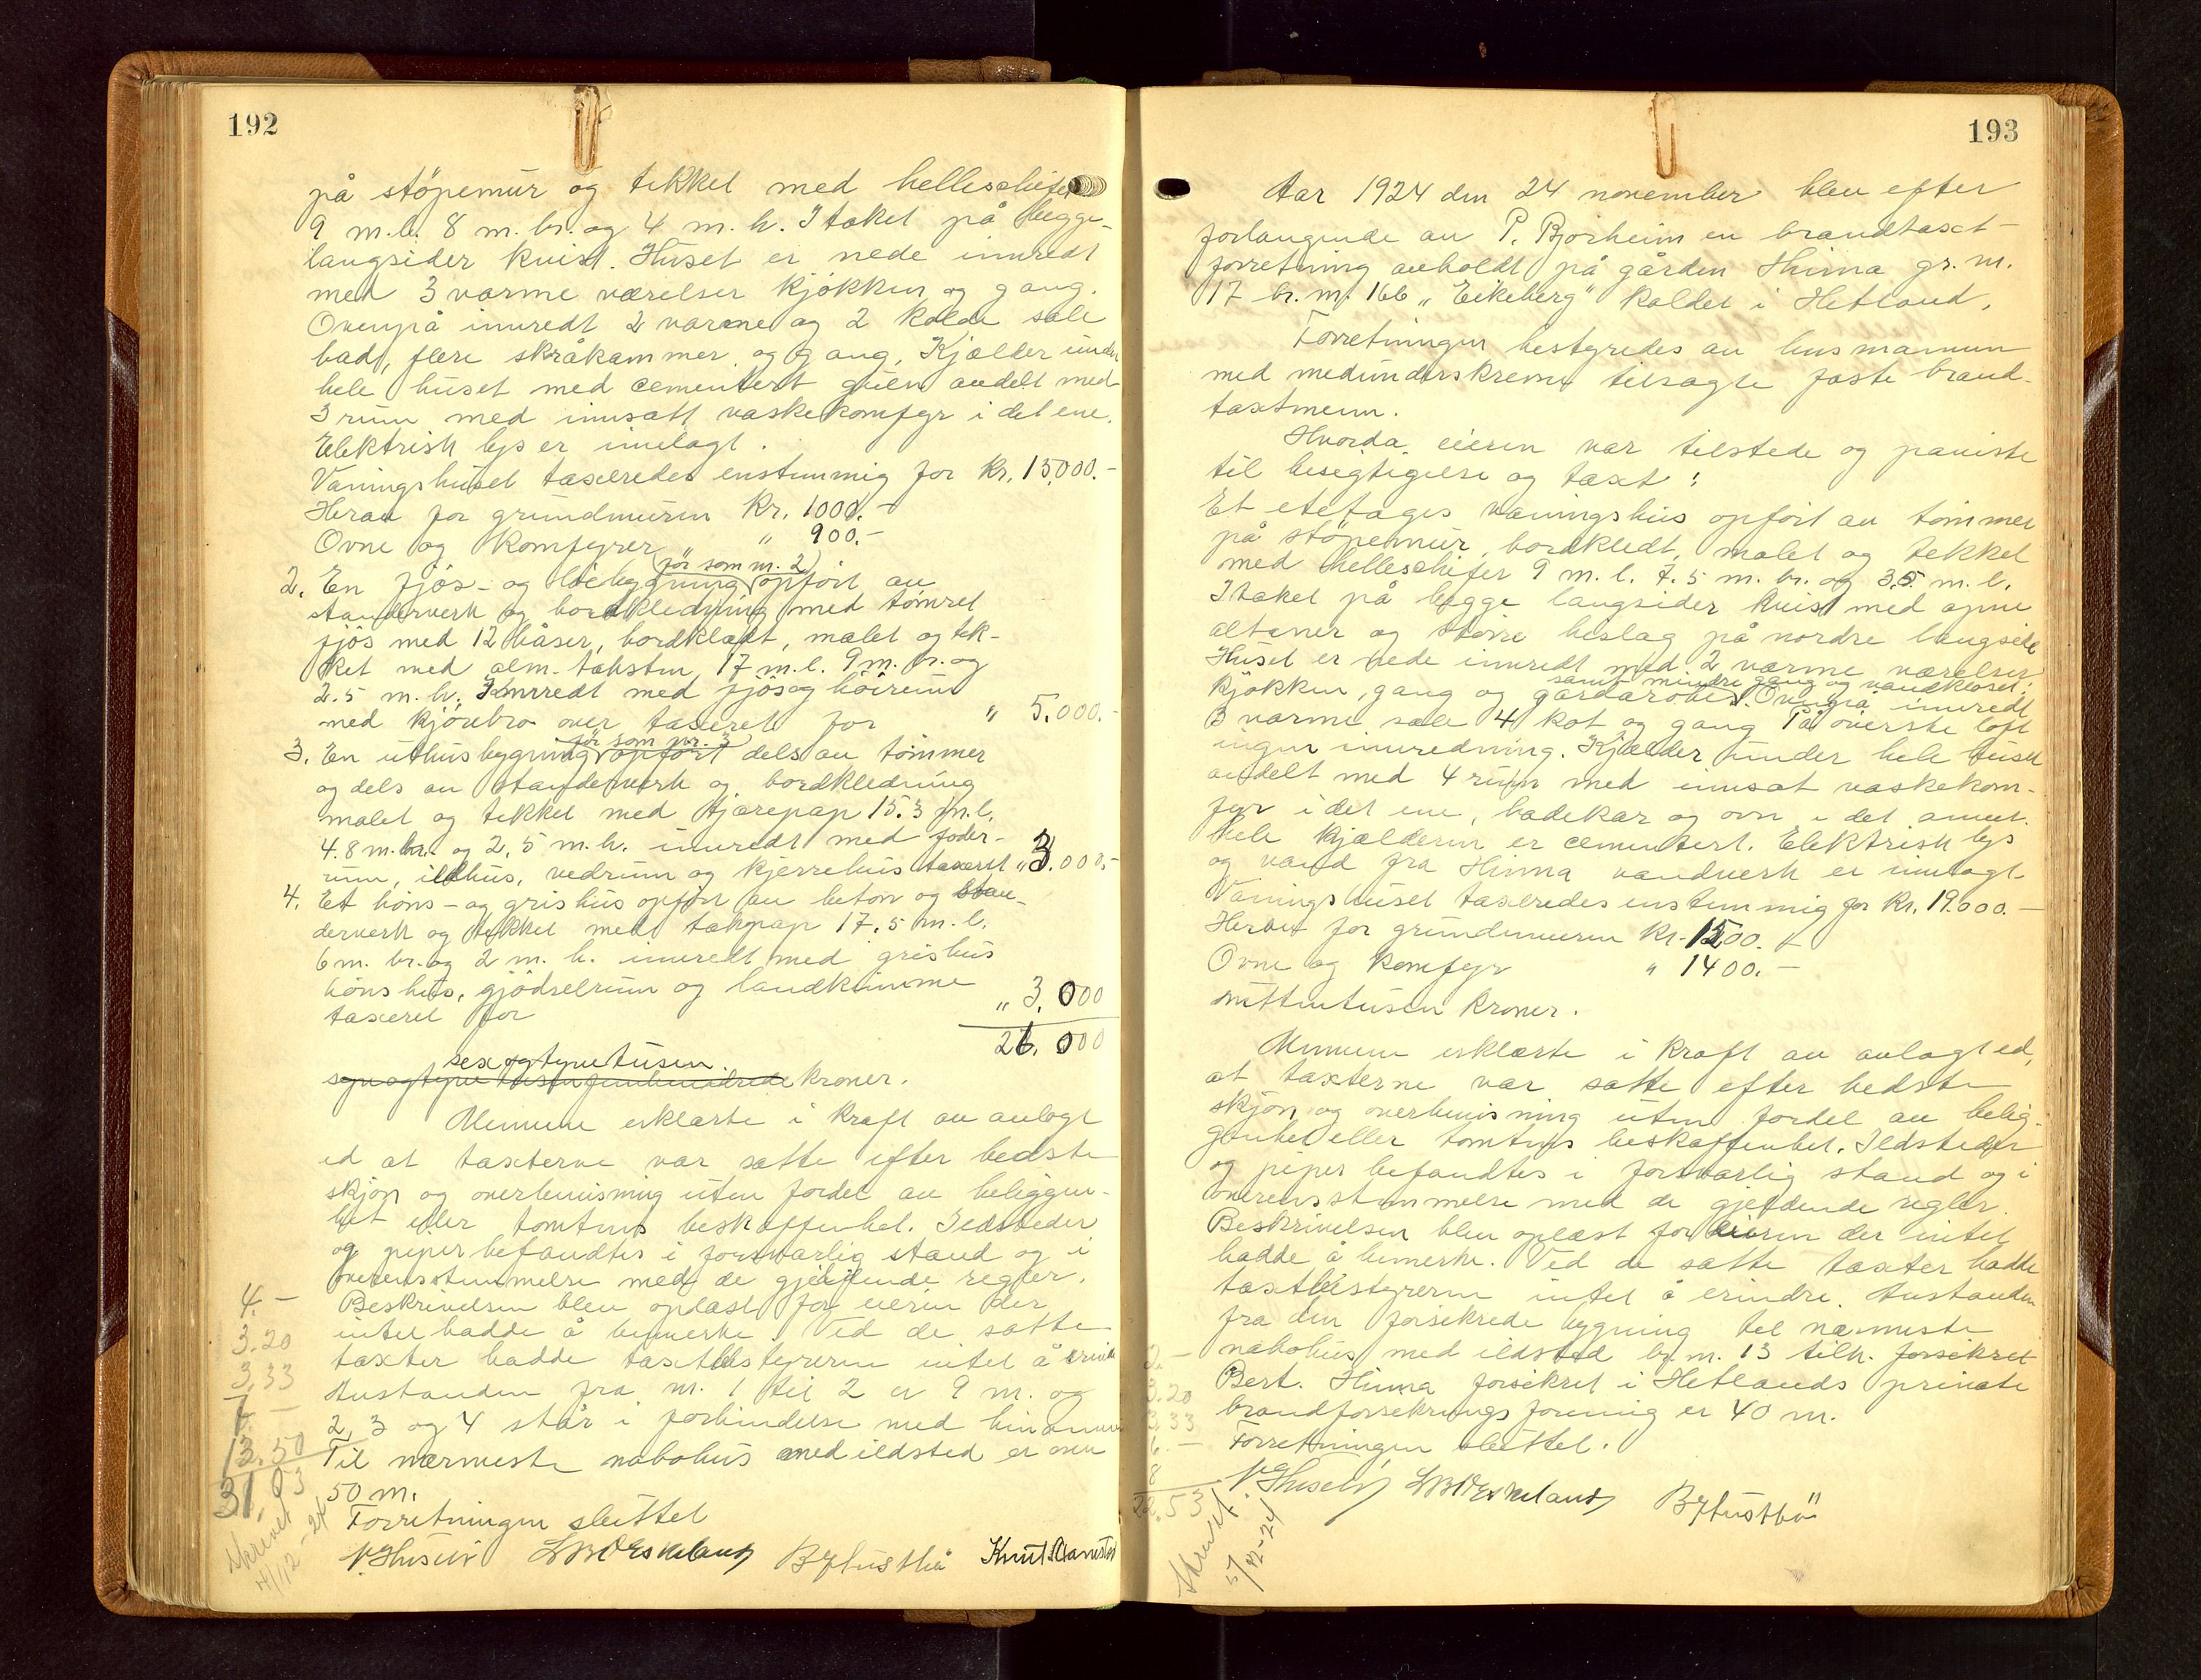 192
på støpemur og tekket med helleschifer
9 m.l. 8 m. br. og 4 m. h. I taket på begge
langsider kvist. Huset er nede innredt
med 3 varme værelser kjøkken og gang.
Ovenpå innredt 2 varme og 2 kolde sale
bad, flere skråkammer og gang. Kjælder under
hele huset med cementert gulv avdelt med
3 rum med innsatt vaskekomfyr i det ene.
Elektrisk lys er innlagt.
Våningshuset taxeredes enstemmig for kr. 15,000.-
Herav for grundmuren kr. 1000.-
Ovne og komfyrer " 900.-
før som nr. 2
2. En fjøs- og løebygning opført av
standerverk og bordkledning med tømret
fjøs med 12 båser, bordklædt, malet og tek-
ket med alm. taksten 17 m.l. 9 m. br. og
2.5 m. h. Innredt med fjøs og høirum
med kjørebro over taxeret for " 5.000.-
før som nr. 3
3. En uthusbygning opført dels av tømmer
og dels av standerverk og bordkledning
malet og tekket med tjærepap 15.3 m.l.
4.8 m. br. og 2,5 m. h. innredt med foder-
rum, ildhus, vedrum og kjerrehus taxeret " 3.000,-
4. Et høns- og grishus opført av beton og stan-
derverk og tekket med takpap 17.5 m. l.
6 m. br. og 2 m. h. innredt med grishus
hønshus, gjødselrum og landkumme
taxeret for " 3.000
26.000
sexogtyvetusen
syvogtyve tusen femhundrede kroner.
Mennene erklærte i kraft av avlagt
ed at taxterne var satte efter bedste
skjøn og overbevisning uten fordel av beliggen-
het eller tomtens beskaffenhet. Ildsteder
og piper befandtes i forsvarlig stand og i
overensstemmelse med de gjeldende regler.
Beskrivelsen blev oplæst for eieren der
intet hadde å bemerke. Ved de satte
taxter hadde taxtbestyreren intet å erindre
Avstanden fra nr. 1 til 2 er 9 m. og
2, 3 og 4 står i forbindelse med hinannen
Til nærmeste nabohus med ildsted er over
50 m.
Forretningen sluttet
N. Husebø Knut
4.-
3.20
3,33
7.-
13.50
31.03
Skrevet
4/12-24
193
Aar 1924 den 24 november blev efter
forlangende av P. Bjorheim en brandtaxt-
forretning avholdt på gården Hinna gr. nr.
17 br. nr. 166 "Eikeberg" kaldet i Hetland.
Forretningen bestyredes av husmannen
med medunderskrevne tilsagte faste brand-
taxtmenn.
Hvorda eieren var tilstede og paaviste
til besigtigelse og taxt:
Et etetages våningshus opført av tømmer
på støpemur, bordkledt, malet og tekket
med helleschifer 9 m. l. 7.5 m. br. og 3,5 m. l.
I taket på begge langsider kvist med åpne
altaner og større beslag på nordre langside
Huset er nede innredt med 2 varme værelser
samt mindre gang og vandkloset.
kjøkken, gang og garderobe. Ovenpå innredt
3 varme sale 4 kot og gang På øverste loft
ingen innredning. Kjælder under hele huset
avdelt med 4 rum med innsat vaskekom-
fyr i det ene, badekar og ovn i det annet.
Hele kjælderen er cementert. Elektrisk lys
og vand fra Hinna vandverk er innlagt
Våningshuset taxeredes enstemmig for kr. 19.000.-
Herav for grundmuren kr. 1500.-
Ovne og komfyr " 1400.-
nittentusen kroner.
Mennene erklærte i kraft av avlagt ed,
at taxterne var satte efter bedste
skjøn og overbevisning uten fordel av belig-
genhet eller tomtens beskaffenhet. Ildsteder
og piper befandtes i forsvarlig stand og i
overensstemmelse med de gjeldende regler.
Beskrivelsen blev oplæst for eieren der intet
hadde å bemerke. Ved de satte taxter hadde
taxtbestyreren intet å erindre. Avstanden
fra den forsikrede bygning til nærmeste
nabohus med ildsted br. nr. 13 tilh. forsikret
Bert. Hinna forsikret i Hetlands private
brandforsikringsforening er 40 m.
Forretningen sluttet.
N. Husebø
3.-
3.20
3.33
6.-
8
22.53
Skrevet
5/12-24